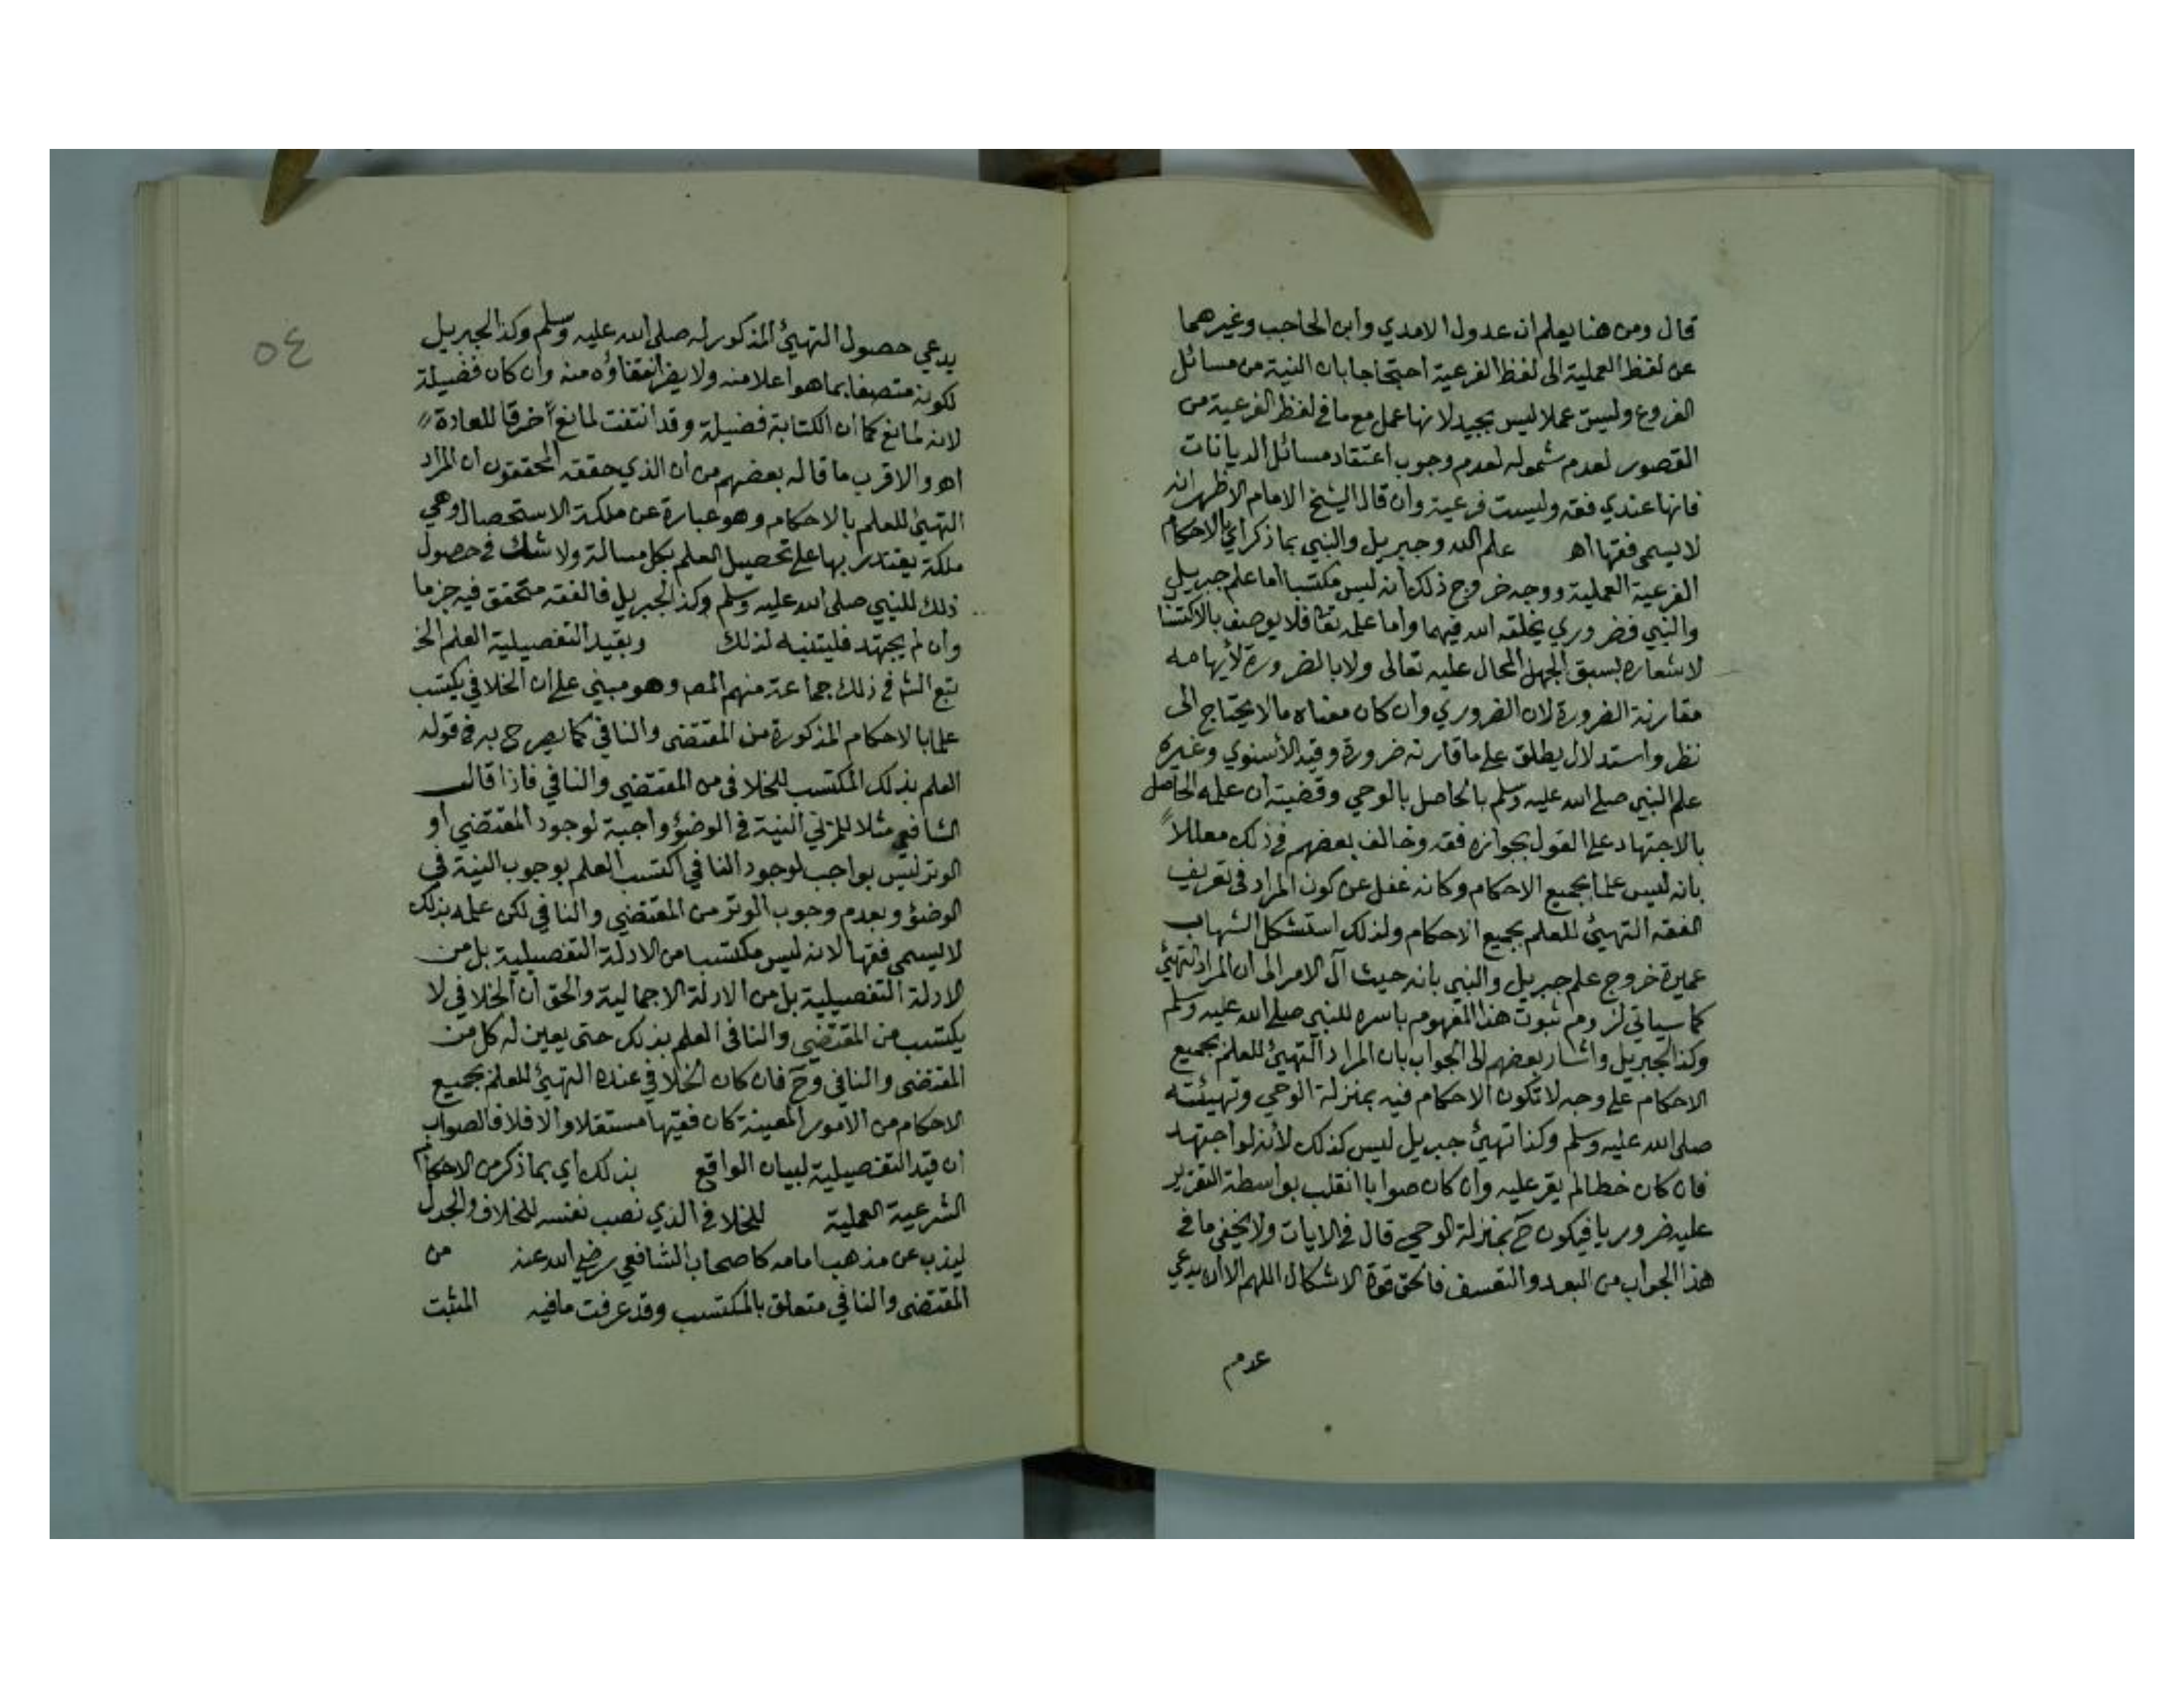 قال ومن هنا يعلم ان عدول الامدي وابن الحاجب وغيرهما
عن لفظ العملية الى لفظ الفرعية احتجاجا بان النية من مسائل
الفروع وليست عملا ليس بجيد لانها عمل مع ما في لفظ الفرعية من
القصور لعدم شموله لعدم وجوب اعتقاد مسائل الديانات
فانها عندي فقه وليست فرعية وان قال الشيخ الامام الاظهر انه
لا يسمى فقها اهـ علم الله وجبريل والنبي بما ذكر اي بالاحكام
الفرعية العملية ووجه خروج ذلك انه ليس مكتسبا اما علم جبريل
والنبي فضروري يخلقه الله فيهما واما علمه تعا فلا يوصف بالاكتسا
لاشعاره بسبق الجهل المحال عليه تعالى ولا بالضرورة لأيهامه
مقارنة الضرورة لان الضروري وان كان معناه ما لا يحتاج الى
نظر واستدلال يطلق على ما قارنه ضرورة وقيد الأسنوي وغيره
علم النبي صلى الله عليه وسلم بالحاصل بالوحي وقضيته ان علمه الحاصل
بالاجتهاد على القول بجوازه فقه وخالف بعضهم في ذلك معللاً
بانه ليس علما بجميع الاحكام وكانه غفل عن كون المراد في تعريف
الفقه التهيئ للعلم بجميع الاحكام ولذلك استشكل الشهاب
عميرة خروج علم جبريل والنبي بانه حيث آل الامر الى ان المراد التهيئ
كما سياتي لزوم ثبوت هذا المفهوم باسره للنبي صلى الله عليه وسلم
وكذا لجبريل واشار بعضهم الى الجواب بان المراد التهيئ للعلم بجميع
الاحكام على وجه لا تكون الاحكام فيه بمنزلة الوحي وتهيئته
صلى الله عليه وسلم وكذا تهيئ جبريل ليس كذلك لأنه لو اجتهد
فان كان خطا لم يقر عليه وان كان صوابا انقلب بواسطة التقرير
عليه ضروريا فيكون ح بمنزلة الوحي قال في الايات ولا يخفى ما في
هذا الجواب من البعد والتعسف فالحق قوة الاشكال اللهم الا ان يدعي
عدم
٥٤
يدعي حصول التهيئ المذكور له صلى الله عليه وسلم وكذا لجبريل
لكونه متصفا بما هو اعلا منه ولا يضر انتفاؤه منه وان كان فضيلة
لانه لمانع كما ان الكتابة فضيلة وقد انتفت لمانع اخرقا للعادة
اهـ والاقرب ما قاله بعضهم من ان الذي حققه المحققون ان المراد
التهيئ للعلم بالاحكام وهو عبارة عن ملكة الاستحصال وهي
ملكة يقتدر بها على تحصيل العلم بكل مسالة ولا شك في حصول
ذلك للنبي صلى الله عليه وسلم وكذا لجبريل فالفقه متحقق فيه جزما
وان لم يجتهد فليتنبه لذلك وبقيد التفصيلية العلم الخ
تبع الش في ذلك جماعة منهم المص وهو مبني على ان الخلافي يكتسب
علما بالاحكام المذكورة من المقتضى والنافي كما يصرح به في قوله
العلم بذلك المكتسب للخلافى من المقتضي والنافي فاذا قال
الشافعي مثلا للمزني النية في الوضؤ واجبة لوجود المقتضي او
الوتر ليس بواجب لوجود النافي اكتسب العلم بوجوب النية في
الوضؤ وبعدم وجوب الوتر من المقتضي والنافي لكن علمه بذلك
لا يسمى فقها لانه ليس مكتسبا من الادلة التفصيلية بل من
الادلة التفصيلية بل من الادلة الاجمالية والحق ان الخلافي لا
يكتسب من المقتضي والنافى العلم بذلك حتى يعين له كل من
المقتضى والنافي وح فان كان الخلافي عنده التهيئ للعلم بجميع
الاحكام من الامور المعينة كان فقيها مستقلا والا فلا فالصواب
ان قيد التفصيلية لبيان الواقع بذلك اي بما ذكر من الاحكام
الشرعية العملية للخلافي الذي نصب نفسه للخلاف والجدل
ليذب عن مذهب امامه كاصحاب الشافعي رضي الله عنه من
المقتضى والنافي متعلق بالمكتسب وقد عرفت ما فيه المثبت